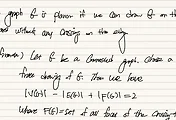 graph G is planar if we can draw G on the
without any crossing on the
Let G be a connected graph. choose a
free drawing of G. Then we have
|V(G)| - |E(G)| + |F(G)| = 2
where F(G) = set of all faces of the crossing-f